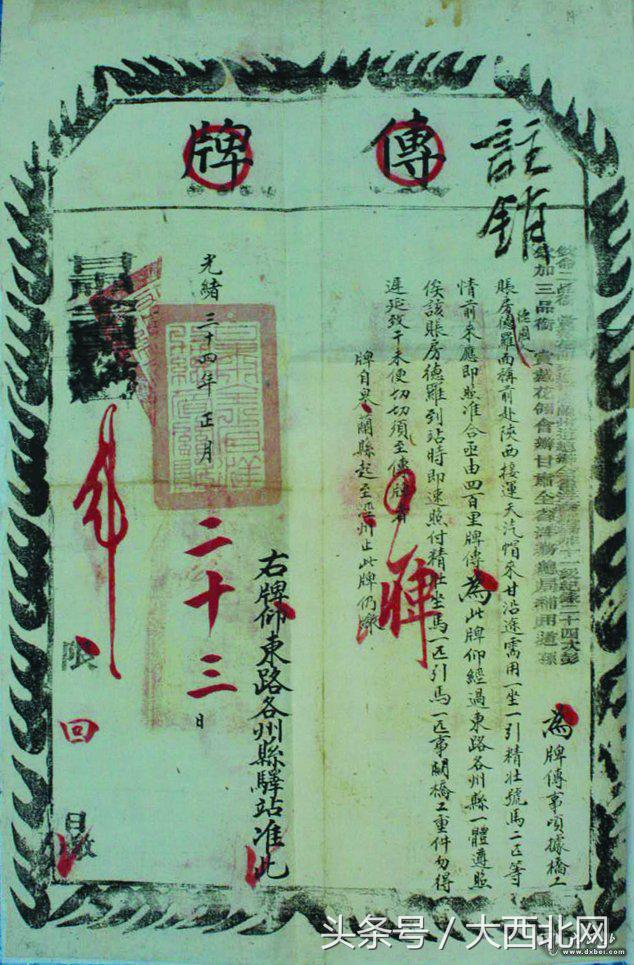 傳牌
註銷
加三品銜賞戴花翎會辦甘肅全省洋務總局補用道孫
為牌傳事項據橋工
德國
賬房德羅面稱前赴陝西接運天汽帽來甘沿途需用一坐一引精壯號馬二匹等
情前來應即照准合亟由四百里牌傳為此牌仰經過東路各州縣一體遵照
俟該賬房德羅到站時即速照付精壯坐馬一匹引馬一匹事關橋工重件勿得
遲延致干未便切切須至傳牌者
牌自皋蘭縣起至涇州止此牌仍繳
右牌仰東路各州縣驛站准此
光緒三十四年正月二十三日
限回日繳
头条号／大西北网
www.dxbei.com